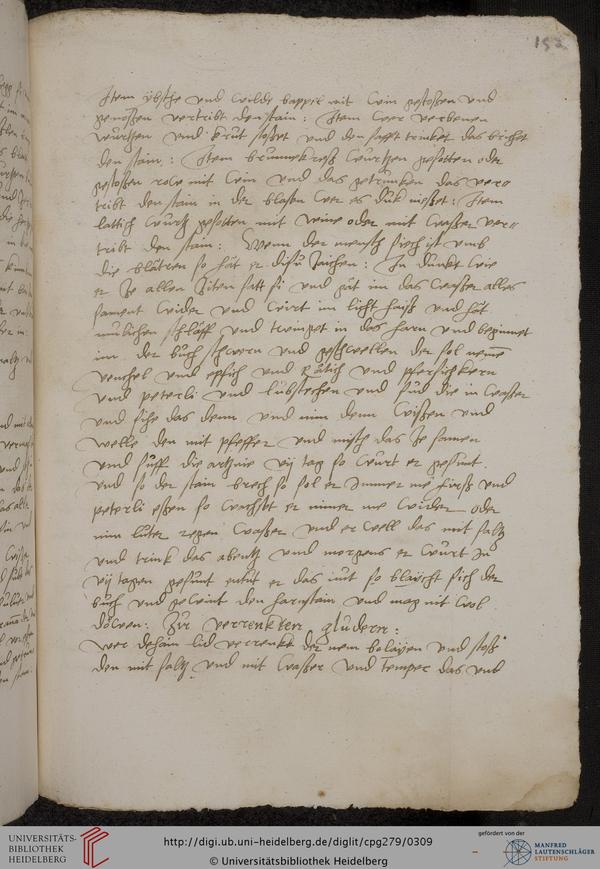 152
Item ybsche vnd wilde bappel mit win gestossen vnd
genossen vertribt den stain : Item wer verbenen
wurtzen vnd krut sosset vnd den safft trincket das brichet
den stain : Item brunnekreß wurtzen gesotten oder
gestossen row mit win vnd das getruncken das ver
tribt den stain in der blasen wer es dick niesset : Item
lattich wurtz gesotten mit wine oder mit wasser ver
tribt den stain : Wenn der mensch siech ist vmb
die blatren so hat er disu zaichen : In dunckt wie
er ze allen ziten satt si vnd gat im das wasser alles
sament wider vnd wirt im licht haiß vnd hat
schlaff vnd in das harn vnd beginnet
im der buch schwern vnd geschwellen der sol neme
venchel vnd epfich vnd rätich vnd pfersichkern
vnd peterli vnd lubstechen vnd sud die in wasser
vnd sihe das denn vnd nim denn wissen vnd
welle den mit pfeffer vnd misch das ze samen
vnd suff die artznie vij tag so wurt er gesunt .
vnd so der stain brech so sol er immer me kirß vnd
peterli essen so wachst er nimer me wider oder
nim luter regen wasser vnd er well das mit saltz
vnd trink das abentz vnd morgens er wurt in
vij tagen gesunt entut er das nut so blaycht sich der
buch vnd gewint den harnstain vnd mag nit wol
döwen : Zu verrenkten glidern :
wer dehain lid verrenkt der nem bolayen vnd stoß
den mit saltz vnd mit wasser vnd temper das vnd
UNIVERSITÄTS-
BIBLIOTHEK
HEIDELBERG
http://digi.ub.uni-heidelberg.de/diglit/cpg279/0309
© Universitätsbibliothek Heidelberg
gefördert von der
MANFRED
LAUTENSCHLÄGER
STIFTUNG